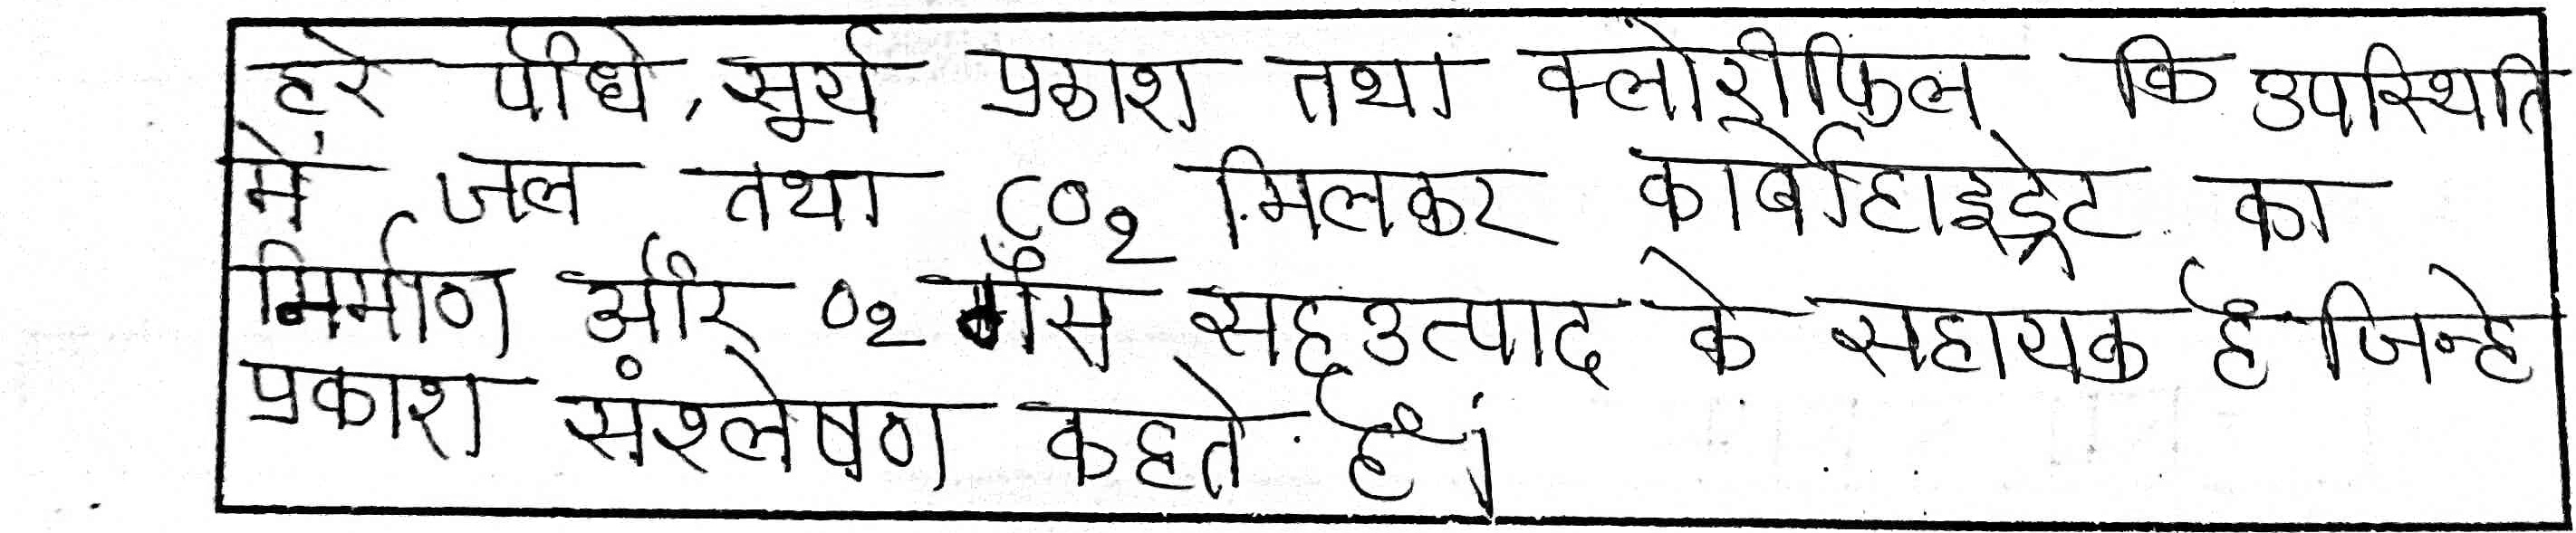 हरे पौधे, सूर्य प्रकाश तथा क्लोरोफिल कि उपस्थिति
में जल तथा CO2 मिलकर कार्बोहाइड्रेट का
निर्माण और O2 गैस सहउत्पाद के सहायक है जिन्हे
प्रकाश संश्लेषण कहते है।